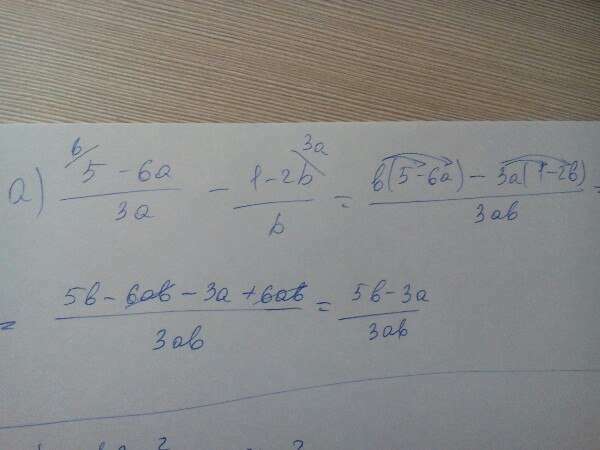 a) b/ 5 - 6a / 3a - 3a\ 1 - 2b / b = b(5 - 6a) - 3a(1 - 2b) / 3ab =
= 5b - 6ab - 3a + 6ab / 3ab = 5b - 3a / 3ab